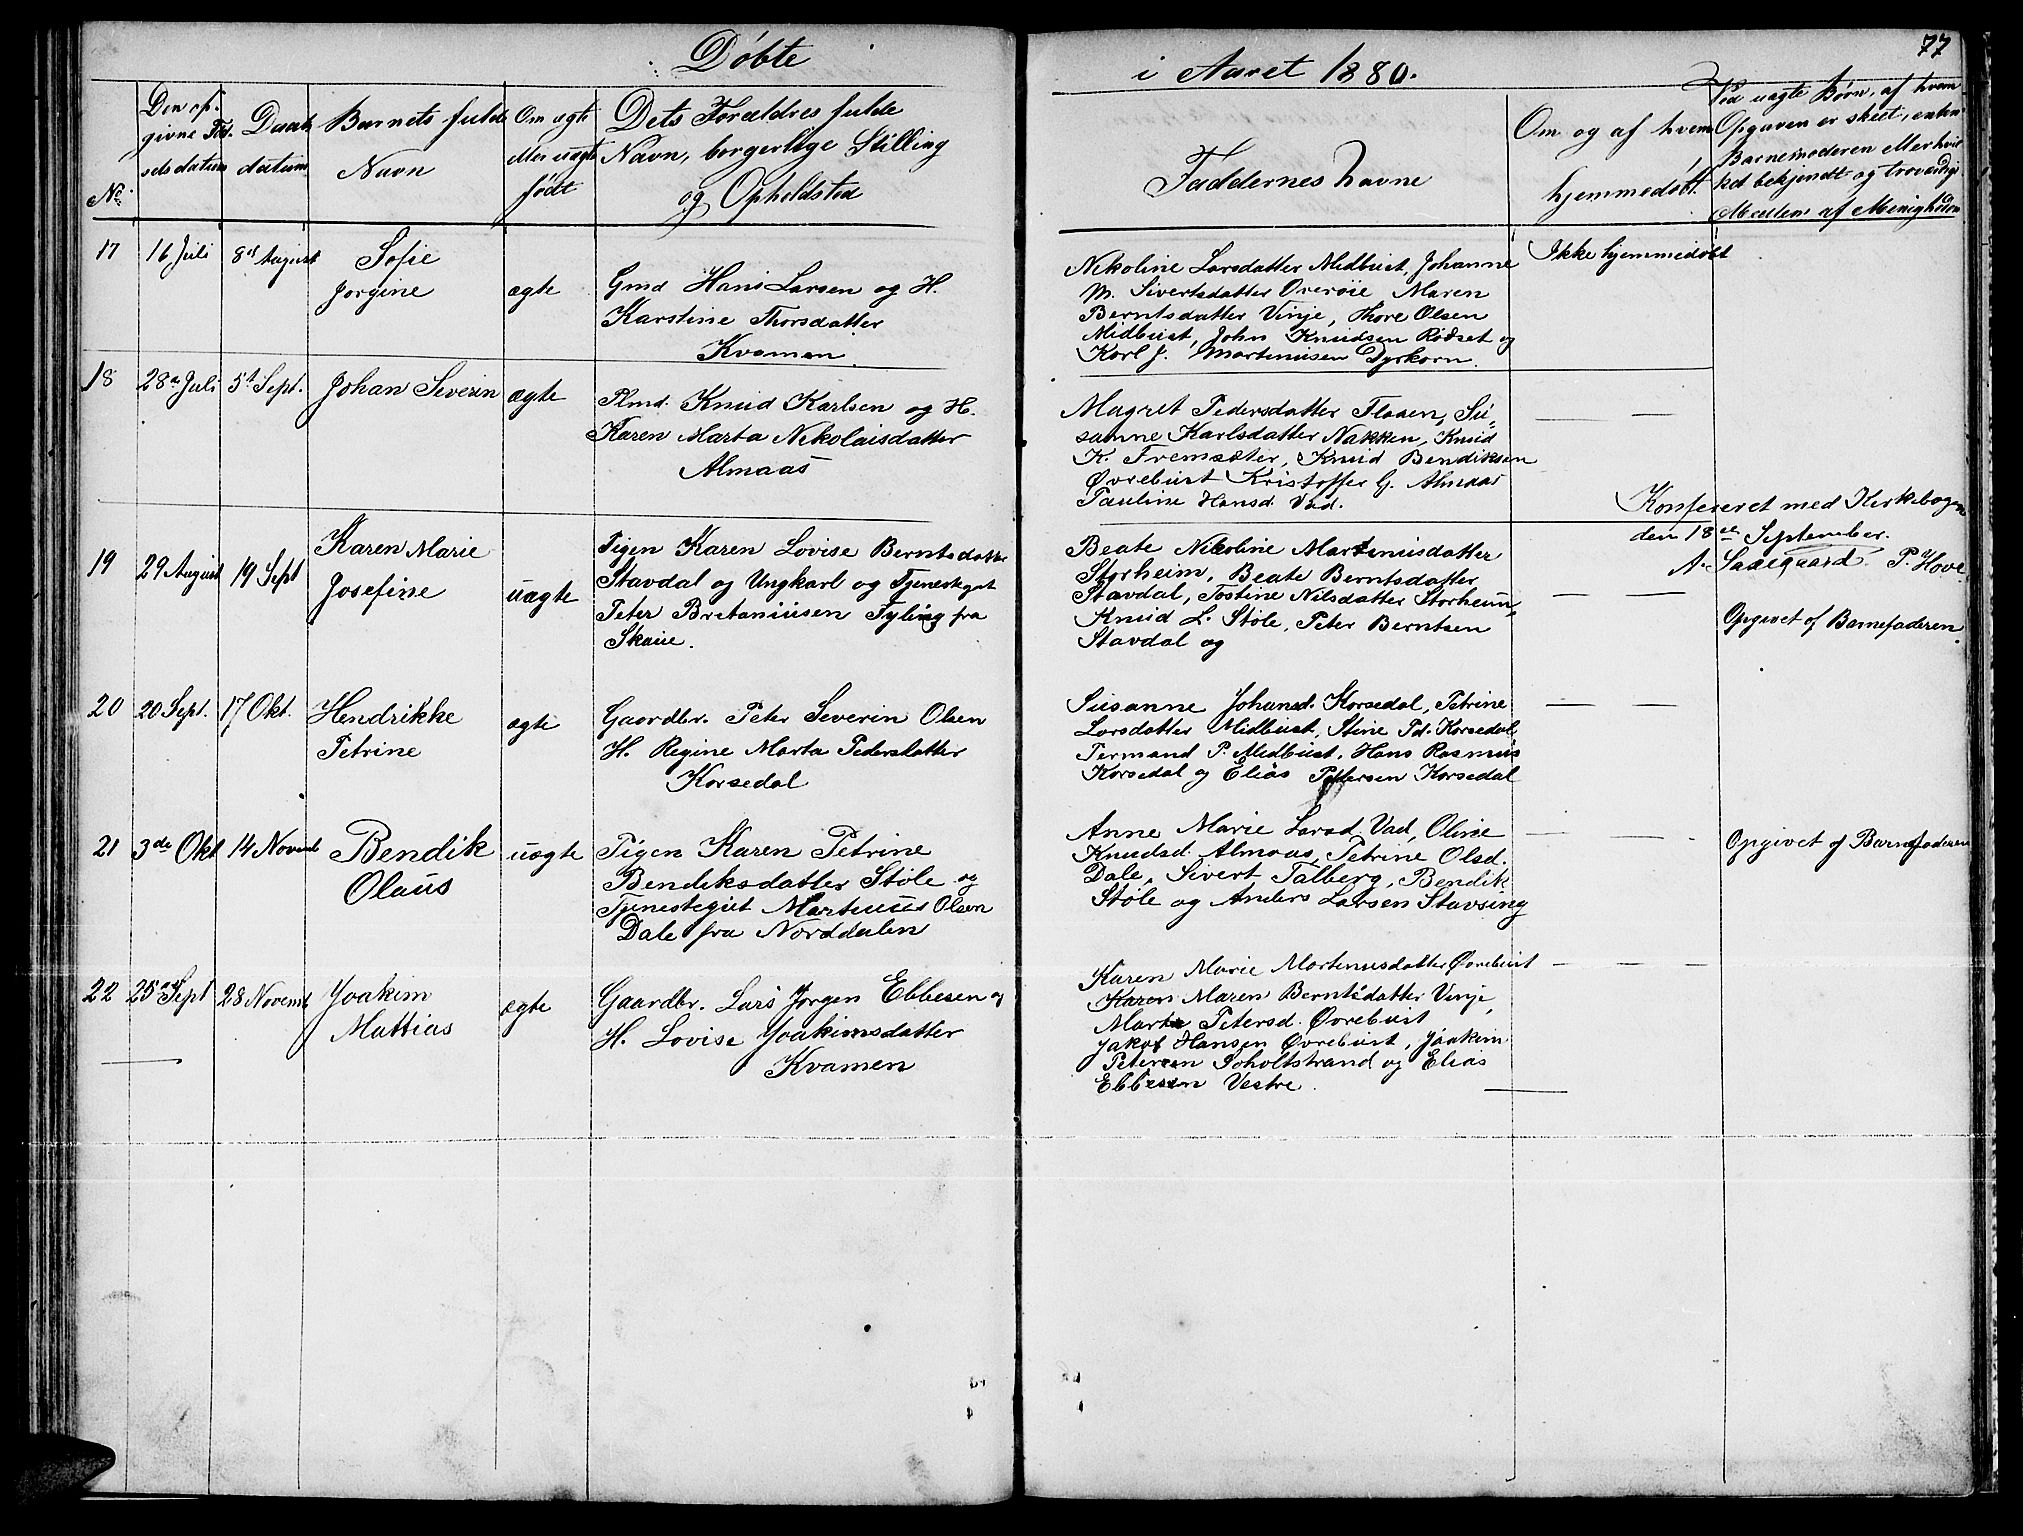 Døbte
i Aaret 1880.
77
No.
Den op-
givne Fød-
selsdatum
Daabs
datum
Barnets fulde
Navn
Om ægte
eller uægte
født
Dets Forældres fulde
Navn, borgerlige Stilling
og Opholdsted
Faddernes Navne
Om og af hvem
hjemmedøbt.
Ved uægte Børn, af hvem
Opgaven er skeet, enten
Barnemoderen eller hvil
ket bekjendt og troværdigt
Medlem af Menigheden
17
16 Juli
8de August
Sofie
Jorgine
ægte
Gmd Hans Larsen og H.
Karstine Thorsdatter
Kvamen
Nikoline Larsdatter Midbust, Johanne
M. Sivertsdatter Overøie Maren
Berntsdatter Vinje, Thore Olsen
Midbust, John Knudsen Rødset og
Karl J. Martinusen Dyrkorn.
Ikke hjemmedøbt
18
28de Juli
5te Sept.
Johan Severin
ægte
Plmd. Knud Karlsen og H.
Karen Marta Nikolaisdatter
Almaas
Magret Pedersdatter Flaaen, Su-
sanne Karlsdatter Nakken, Knud
K. Fremsæter, Knud Bendiksen
Øvrebust Kristoffer G. Almaas
Pauline Hansd. Vad.
— —
Konfereret med Kirkebogen
den 18de September.
A. Saaeguard. P. Hove
19
29 August
19 Sept
Karen Marie
Josefine
uægte
Pigen Karen Lovise Berntsdatter
Stavdal og Ungkarl og Tjenestegut
Peter Bretaniusen Fyling fra
Skaue.
Beate Nikoline Martinusdatter
Storheim, Beate Berntsdatter
Stavdal, Tostine Nilsdatter Storheim,
Knud L. Støle, Peter Berntsen
Stavdal og
— —
Opgivet af Barnefaderen.
20
20 Sept.
17 Okt.
Hendrikke
Petrine
ægte
Gaardbr. Peter Severin Olsen
H. Regine Marta Pedersdatter
Korsedal
Susanne Johansd. Korsedal, Petrine
Larsdatter Midbust, Stine Pd. Korsedal
Permand P. Midbust, Hans Rasmus
Korsedal og Elias Pettersen Korsedal
— —
21
3de Okt
14 Novemb
Bendik
Olaus
uægte
Pigen Karen Petrine
Bendiksdatter Støle og
Tjenestegut Martinus Olsen
Dale fra Norddalen
Anne Marie Larsd. Vad, Oline
Knudsd. Almaas, Petrine Olsd.
Dale, Sivert Talberg, Bendik
Støle og Anders Larsen Stavsing
— —
Opgivet af Barnefaderen
22
25de Sept
28 Novemb
Joakim
Mattias
ægte
Gaardbr. Lars Jørgen Ebbesen og
H. Lovise Joakimsdatter
Kvamen
Karen Marie Martinusdatter Øvrebust
Karen Maren Berntsdatter Vinje,
Marte Petersd. Øvrebust
Jakob Hansen Øvrebust, Joakim
Petersen Soholtstrand og Elias
Ebbesen Vestre.
— — —